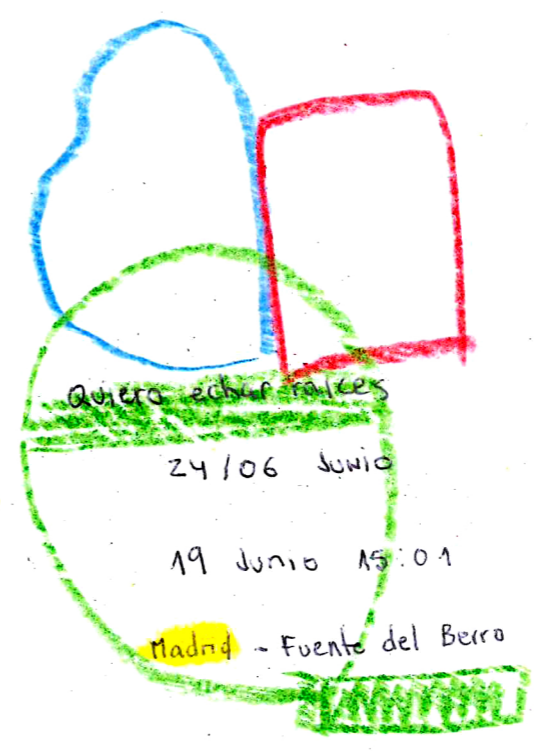 Quiero echar raíces
24/06 Junio
19 Junio 15:01
Madrid - Fuente del Berro